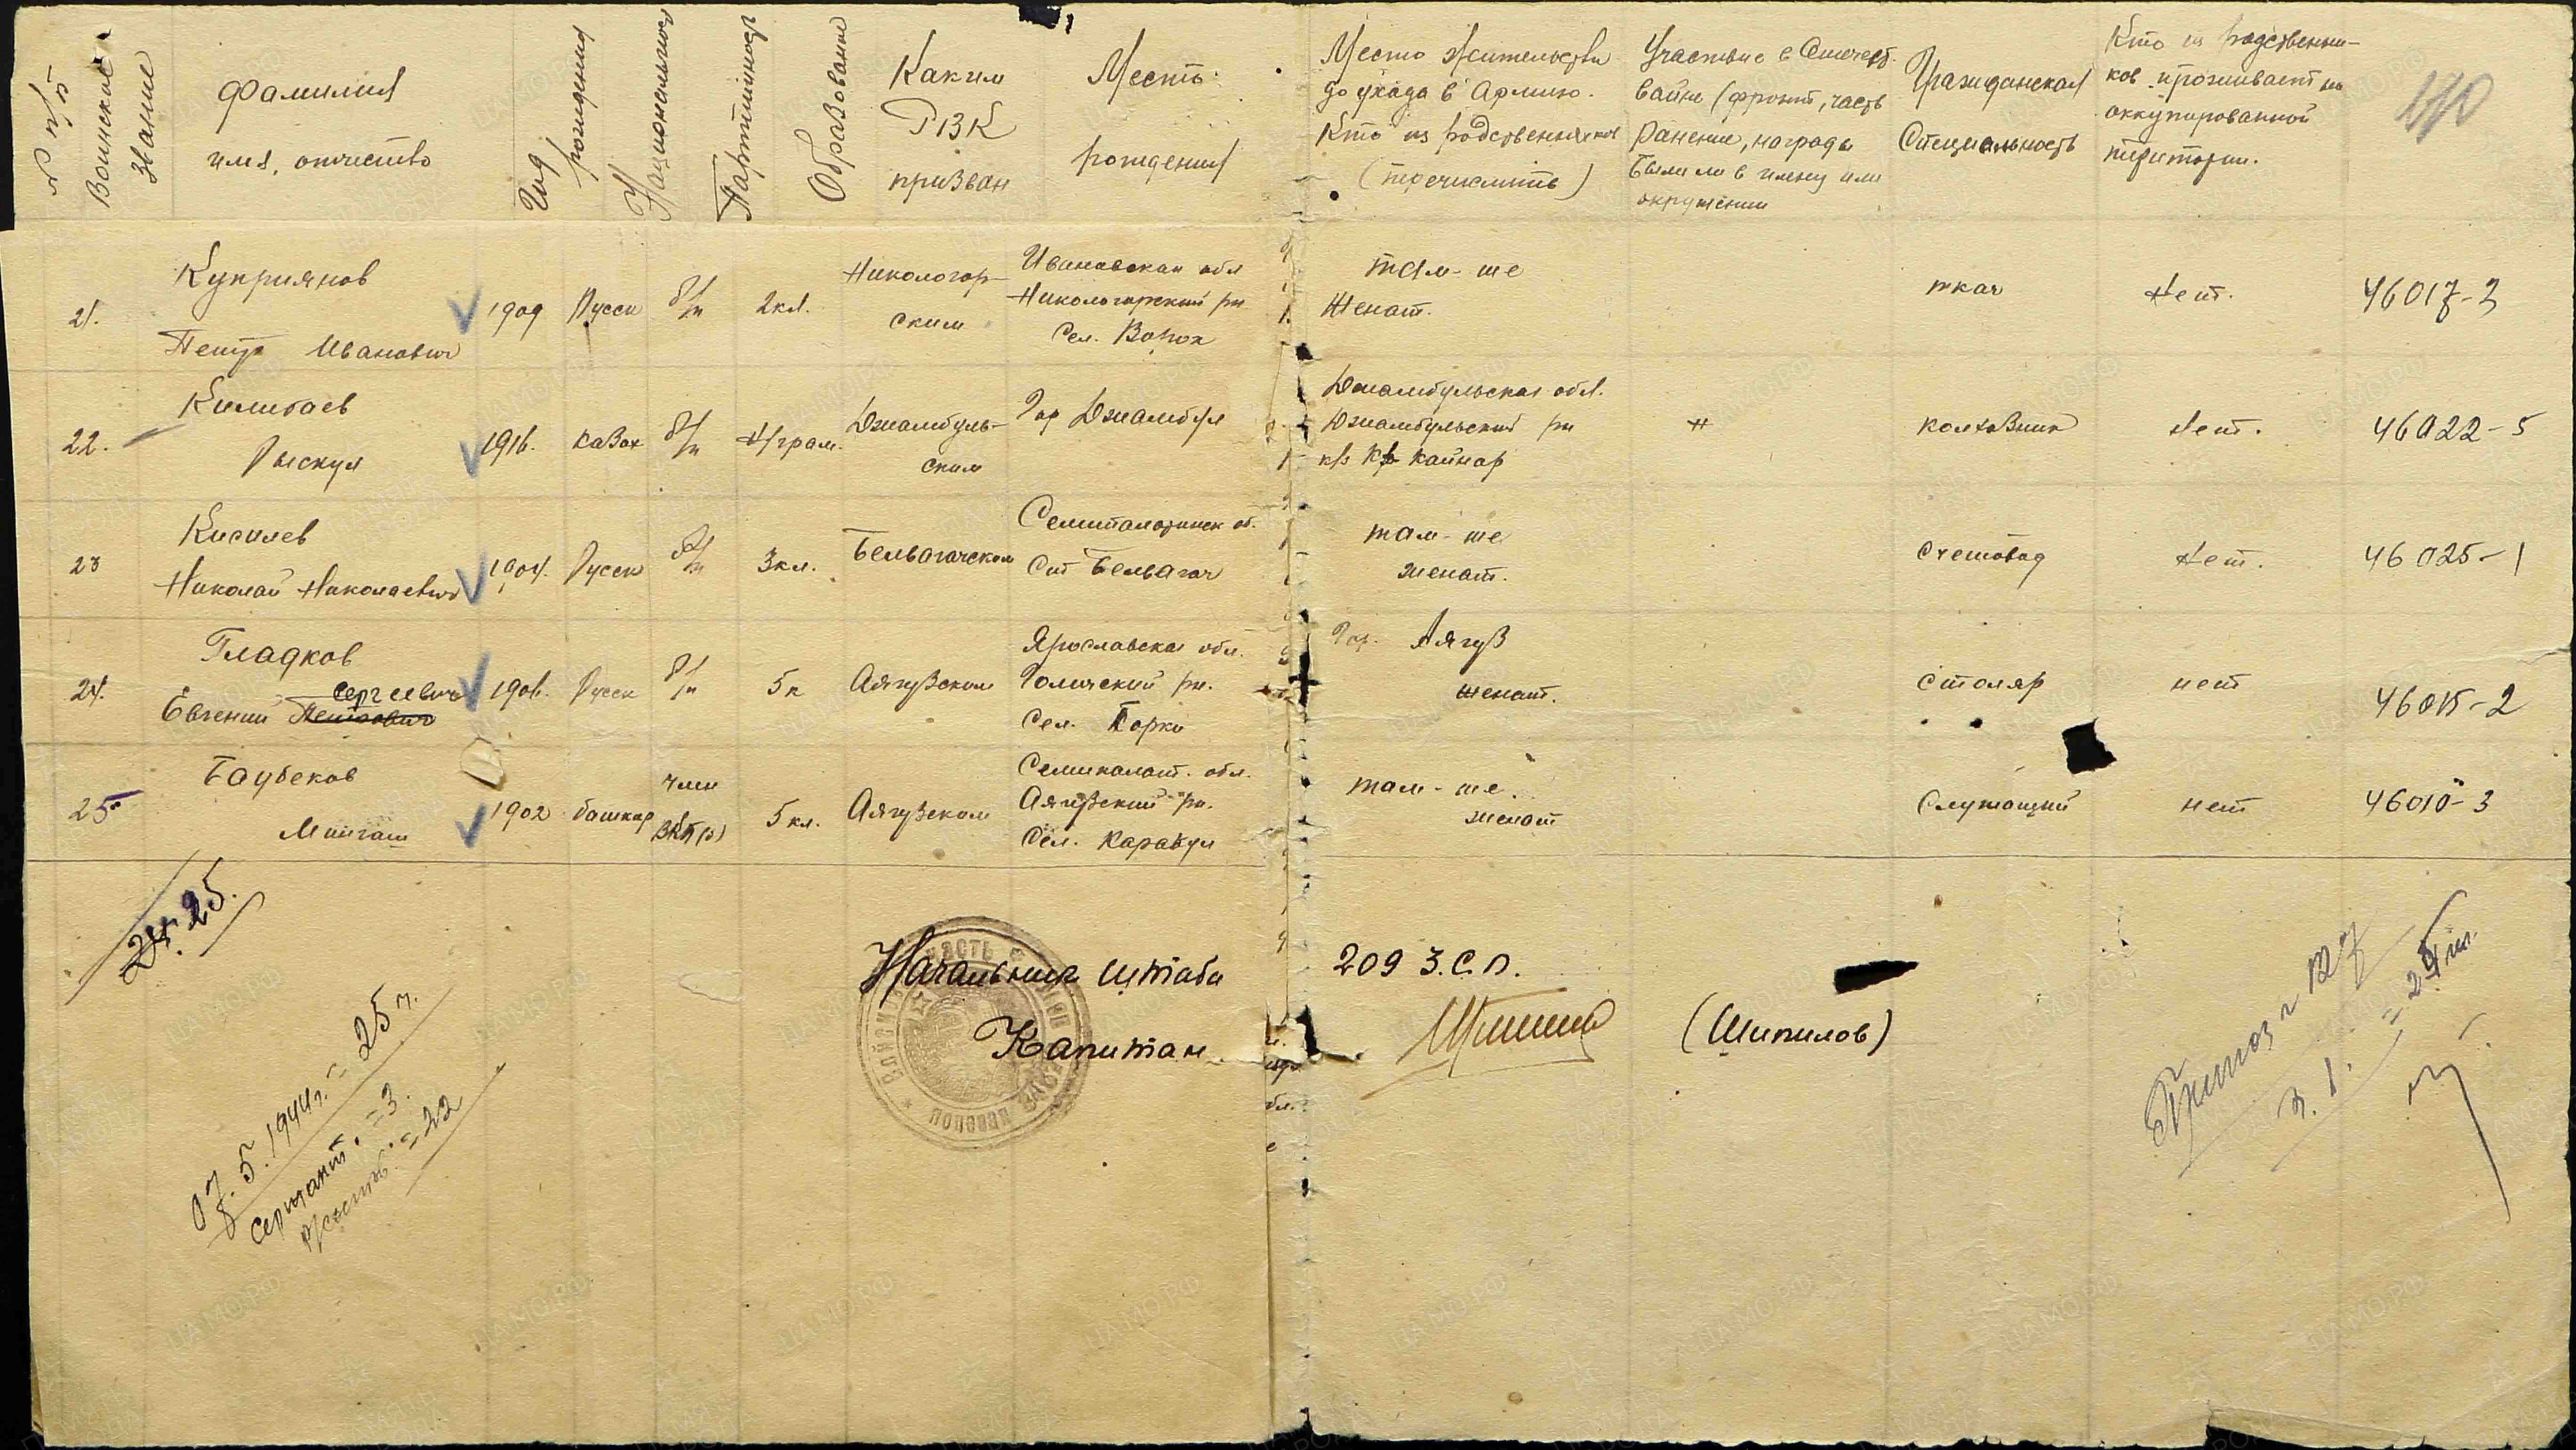 № п/п
Воинское звание
Фамилия
имя, отчество
Год рождения
Национальность
Партийность
Образование
Каким
РВК
призван
Место
рождения
Место жительства
до ухода в Армию.
Кто из родственников
(перечислить)
Участие в Отечест.
войне (фронт, часть
ранение, награды
Были ли в плену или
окружении
Гражданская
специальность
Кто из родственни-
ков проживает на
оккупированной
территории.
21.
Куприянов
Петр Иванович
1909
Русск
б/п
2кл.
Никологор-
ским
Ивановская обл
Никологорский рн
Сел.
там-же
Женат.
ткач
Нет.
46017-3
22.
Килибаев
Рыскул
1916.
казах
б/п
Н/грам.
Джамбуль-
ским
Гор Джамбул
Джамбульская обл.
Джамбульский рн
к/з Кайнар
колхозник
Нет.
46022-5
23
Кисилев
Николай Николаевич
1904.
Русск
б/п
3кл.
Бельагачским
Семипалатинск об.
Бельагач
там-же
женат.
счетовод
Нет.
46025-1
24.
Гладков
Сергеевич
Евгений Петрович
1906.
Русск
б/п
5к
Аягузским
Ярославская обл.
рн.
Сел. Горки
Гор. Аягуз
женат.
столяр
нет
46015-2
25
Баубеков
Мингаш
1902
башкир
член
ВКП(б)
5кл.
Аягузским
Семипалат. обл.
Аягузский рн.
Сел. Каракул
там-же.
женат
служащий
нет
46010-3
25.
Начальник штаба 209 З.С.П.
Капитан (Шипилов)
07.5.1944г. = 25ч.
сержант. = 3.
= 22